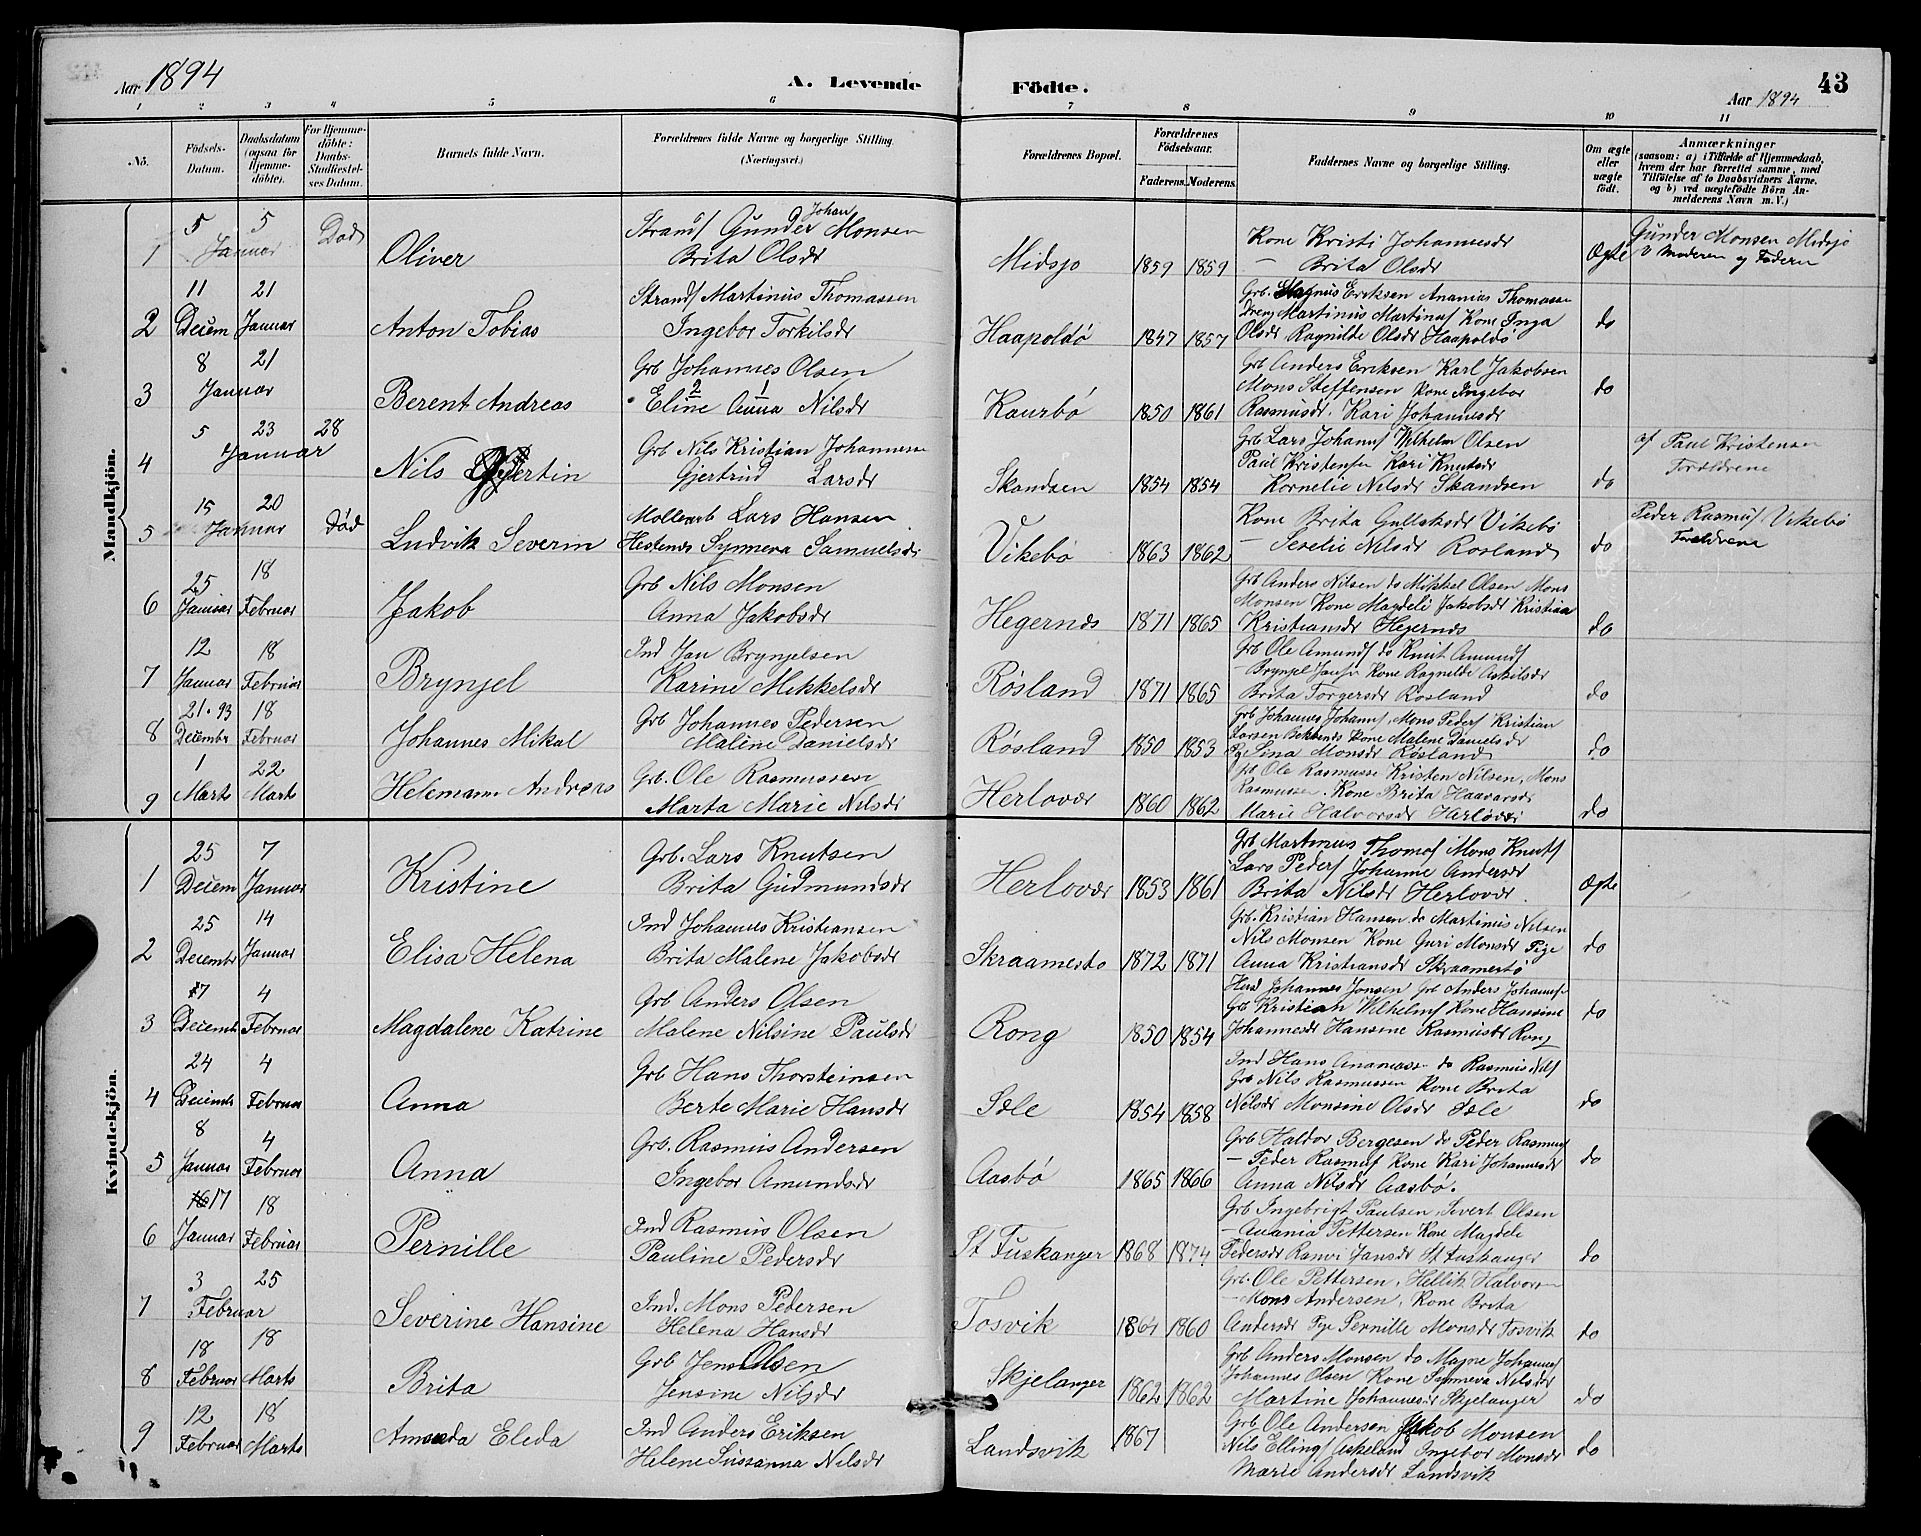 Aar 1894
A. Levende Födte.
Aar 1894
43
1 2 3 4 5 6 7 8 9 10 11
No.
Födsels-Datum.
Daabsdatum (ogsaa for Hjemme-döbte).
For Hjemme-döbte: Daabs-Stadfæstel-ses Datum.
Barnets fulde Navn.
Forældrenes fulde Navne og borgerlige Stilling. (Næringsvei.)
Forældrenes Bopæl.
Forældrenes Födselsaar.
Faderens. Moderens.
Faddernes Navne og borgerlige Stilling.
Om ægte eller uægte födt.
Anmærkninger (saasom: a) i Tilfælde af Hjemmedaab, hvem der har forrettet samme, med Tilföielse af to Daabsvidners Navne, og b) ved uægtefödte Börn An-melderens Navn m. V.)
Mandkjön.
1 5 5 Januar Død Oliver Strands Gunder Johan Monsen
Brita Olsdr Midsjo 1859 1859 Kone Kristi Johannesdr
— Brita Olsdr Ægte Gunder Monsen Midsjo
Moderen og Faderen
2 11 Decem 21 Januar Anton Tobias Strands Martinus Thomassen
Ingebor Torkilsdr Haapoldø 1847 1857 Grb. Magnus Eriksen Ananias Thomasse
Dreng Martinius Martinus Kone Inga
Olsdr Ragnilde Olsdr Haapoldø do
3 8 21 Januar Berent Andreas Grb Johannes Olsen
Eline Anna Nilsdr Kaurbø 1850 1861 Grb Anders Eriksen Karl Jakobsen
Mons Steffensen Kone Ingebor
Rasmusdr. Kari Johannesdr do
4 5 23 28 Januar Nils Gjertin Grb Nils Kristian Johannesse
Gjertrud Larsdr Skandsen 1854 1854 Grb Lars Johans Vilhelm Olsen
Paul Kristensen Kari Knutsdr
Kornelie Nilsdr Skandsen do af Paul Kristensen
Forældrene
5 15 20 Januar Død Ludvik Severin Mollearb Lars Hansen
Hestenes Synneva Samuelsdr Vikebø 1863 1862 Kone Brita Gullaksdr Vikebø
— Serelie Nilsdr Rosland do Peder Rasmus Vikebø
Forældrene
6 25 Januar 18 Februar Jakob Grb Nils Monsen
Anna Jakobsdr Hegernes 1871 1865 Grb Anders Nilsen do Mikkel Olsen Mons
Monsen Kone Magdeli Jakobsdr Kristina
Kristiansdr Hegernes do
7 12 Januar 18 Februar Brynjel Ind Jan Brynjelsen
Karine Mikkelsdr Røsland 1871 1865 Grb Ole Amunds do Knut Amunds
Brynjel Jansen Kone Ragnilde Askilsdr
Brita Torgersdr Rosland do
8 21.93 Decembr 18 Februar Johannes Mikal Grb Johannes Pedersen
Malene Danielsdr Røsland 1850 1853 Grb Johannes Johans, Mons Peders Kristian
Larsen Kone Malene Danielsdr
Pge Lina Monsdr Røsland do
9 1 Marts 22 Marts Helemann Andreas Grb. Ole Rasmussen
Marta Marie Nilsdr Herlovær 1860 1862 Grb Ole Rasmusse Kristen Nilsen, Mons
Rasmussen. Kone Brita Haavarsdr
Marie Halvorsdr Herlovær do
Kvindekjön.
1 25 Decem 7 Januar Kristine Grb. Lars Knutsen
Brita Gudmundsdr Herlovær 1853 1861 Grb Martinus Thomas Mons Knuts
Lars Peders Johanne Andersdr
Brita Nilsdr Herlovær. Ægte
2 25 Decembr 14 Januar Elisa Helena Ind Johannes Kristiansen
Brita Malene Jakobsdr Skraamesto 1872 1871 Grb. Kristian Hansen do Martinus Nilsen
Nils Monsen Kone Guri Monsdr Pige
Anna Kristiansdr Skraamestø do
3 17 Decembr 4 Februar Magdalene Katrine Grb Anders Olsen
Malene Nilsine Paulsdr Rong 1850 1854 Hans Johannes Jonsen Grb Anders Johannese
Grb Kristian Wilhelms Kone Hansine
Johannesdr Hansine Rasmusdr Rong do
4 24 Decembr 4 Februar Anna Grb Hans Thorsteinsen
Berte Marie Hansdr Sæle 1854 1858 Ind Hans Ananiasse do Rasmus Nils
Grb Nils Rasmussen Kone Brita
Nilsdr Monsine Olsdr Sæle do
5 8 Januar 4 Februar Anna Grb. Rasmus Andersen
Ingebor Amundsdr Aasbø 1865 1866 Grb Haldor Bergesen do Peder Rasmus
— Peder Rasmus Kone Kari Johannesdr
Anna Nilsdr Aasbø. do
6 17 Januar 18 Februar Pernille Ind Rasmus Olsen
Pauline Pedersdr St Fuskanger 1868 1874 Grb Ingebrigt Paulsen, Sivert Olsen
— Anania Pettersen Kone Magdele
Pedersdr Ranvi Jansdr St Fuskanger do
7 3 25 Februar Severine Hansine Ind. Mons Pedersen
Helena Hansdr Tosvik 1864 1860 Grb. Ole Pettersen, Hellik Halvorsen
— Mons Andersen, Kone Brita
Andersdr Pge Pernille Monsdr Tosvik do
8 18 Februar 18 Marts Brita Grb Jens Olsen
Jensine Nilsdr Skjelanger 1862 1862 Grb Anders Monsen do Magne Johannes
Johannes Olsen Kone Synneva Nilsdr
Martine Johannesdr Skjelanger do
9 12 Februar 18 Marts Amanda Eleda Ind Anders Eriksen
Helene Sussanna Nilsdr Landsvik 1867 Grb Ole Andersen Jakob Monsen
Nils Ellings Askeland Ingebor Monsdr
Marie Andersdr Landsvik do